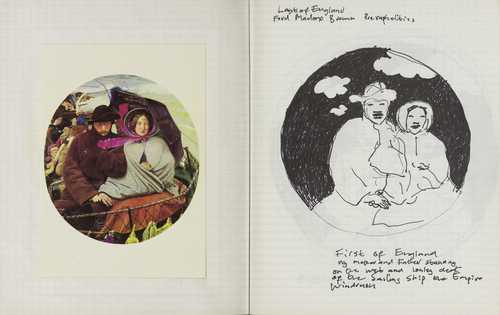 Last of England
Ford Madox Brown Preraphalites
First of England
my mother and Father standing
on the wet and lonley deck
of the Sailing Ship the Empire
Windrush